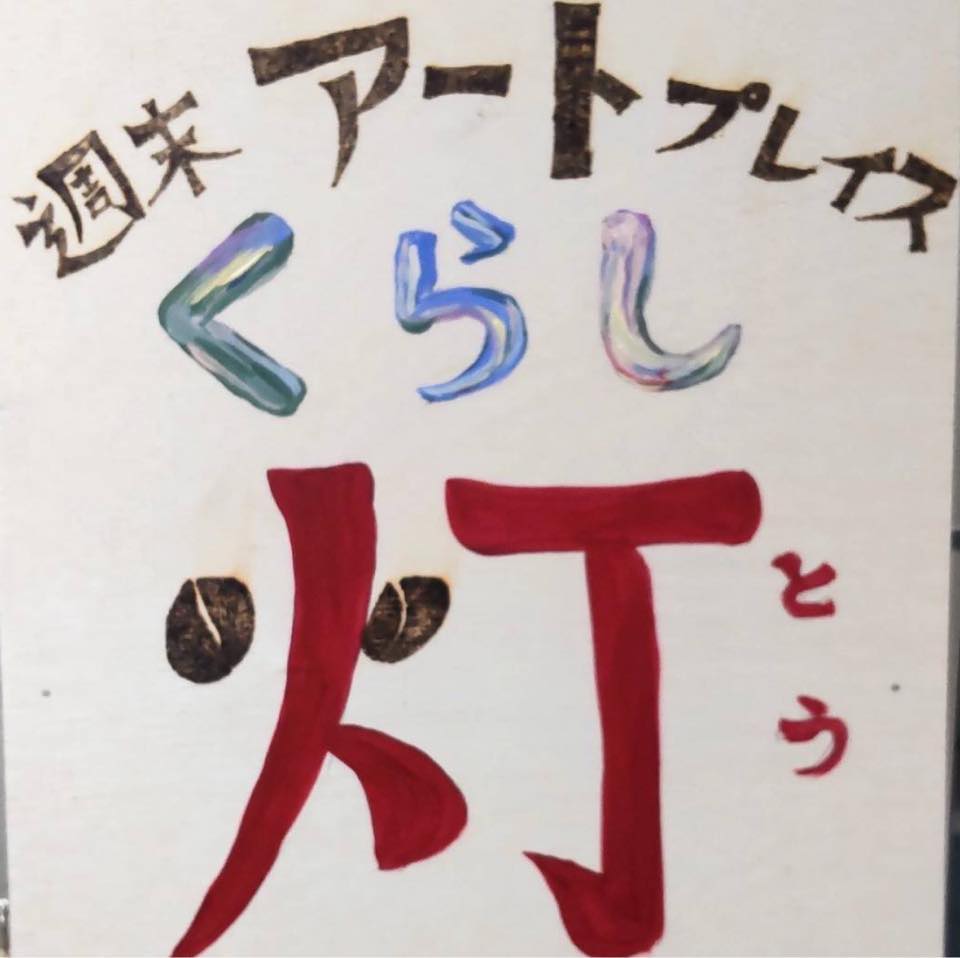 週末アートプレイス
くらし
灯
とう